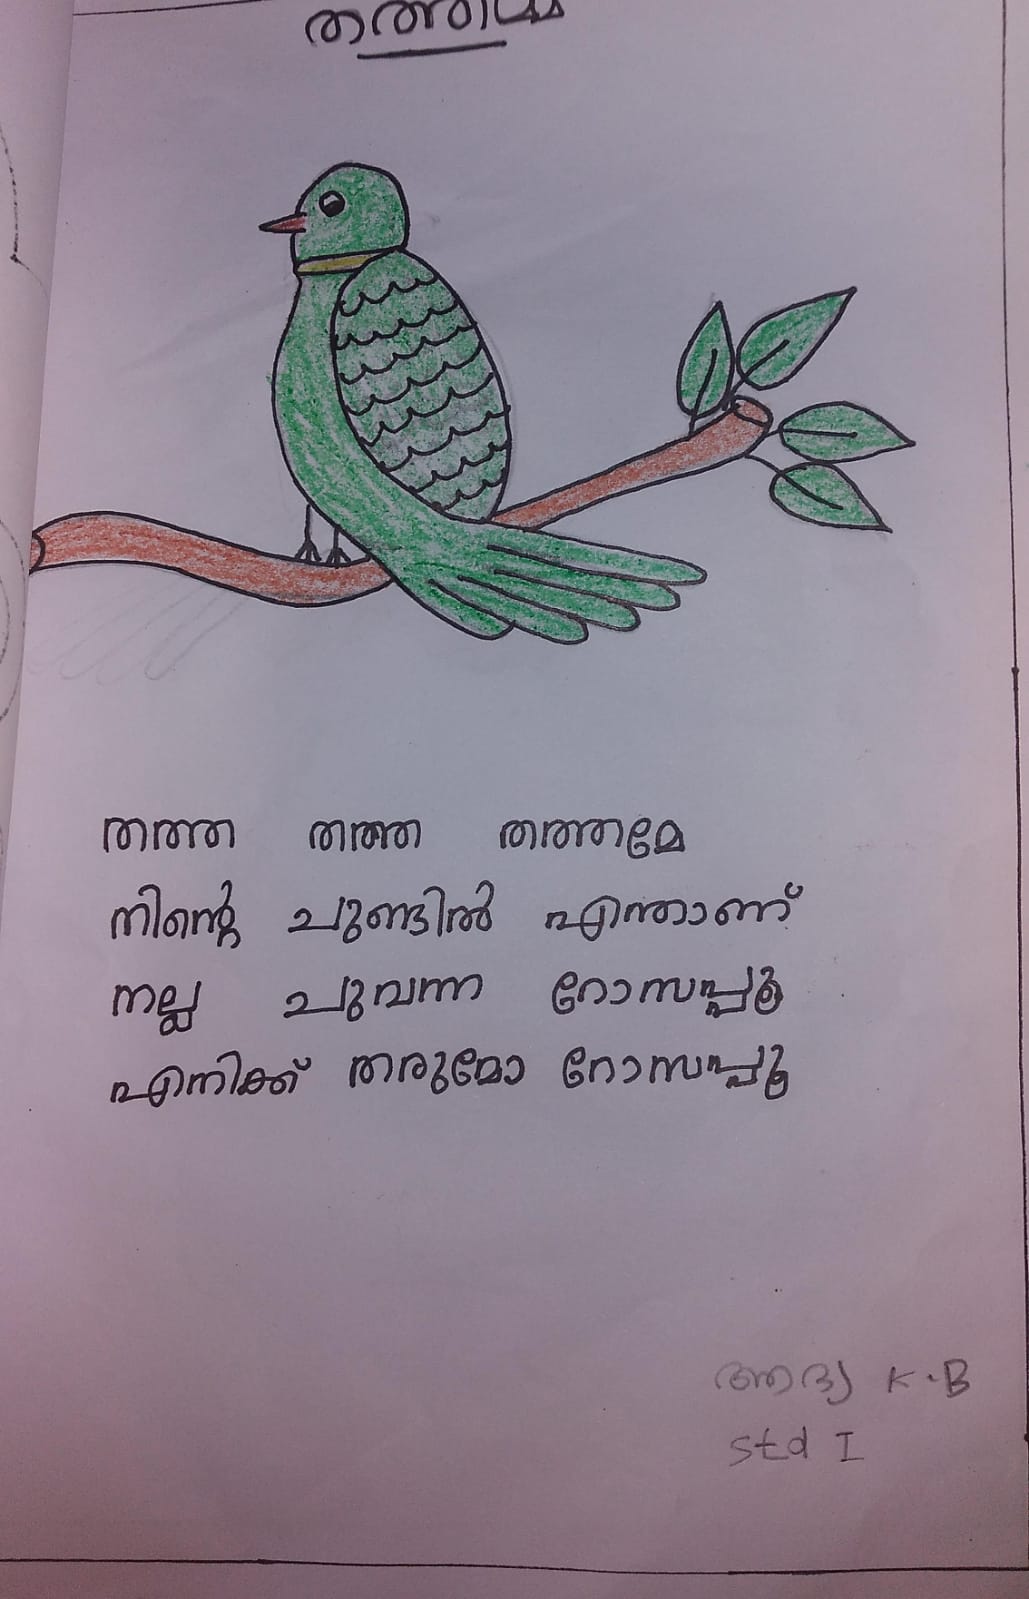 തത്തമ്മ
തത്ത തത്ത തത്തമ്മേ
നിന്റെ ചുണ്ടിൽ എന്താണ്
നല്ല ചുവന്ന റോസപ്പൂ
എനിക്ക് തരുമോ റോസപ്പൂ
ആദ്യ K.B
Std I